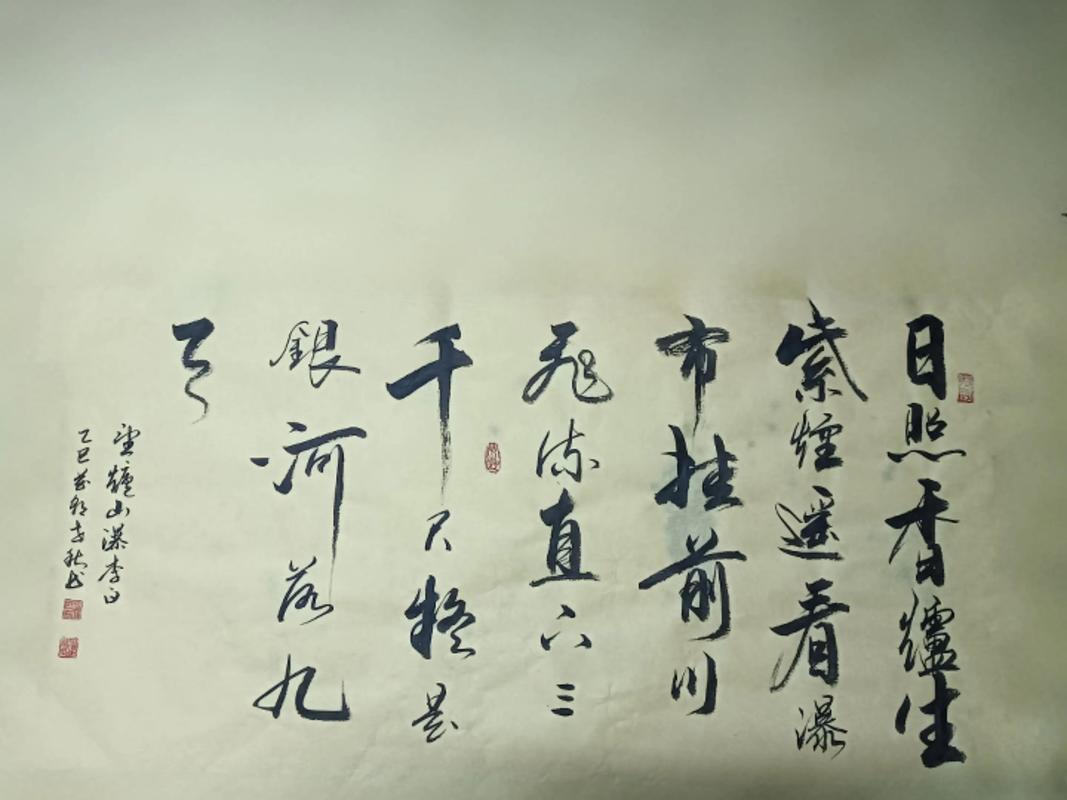 日照香爐生
紫煙遥看瀑
布挂前川
飛流直下三
千尺疑是
銀河落九
天
望爐山瀑李白
乙巳书